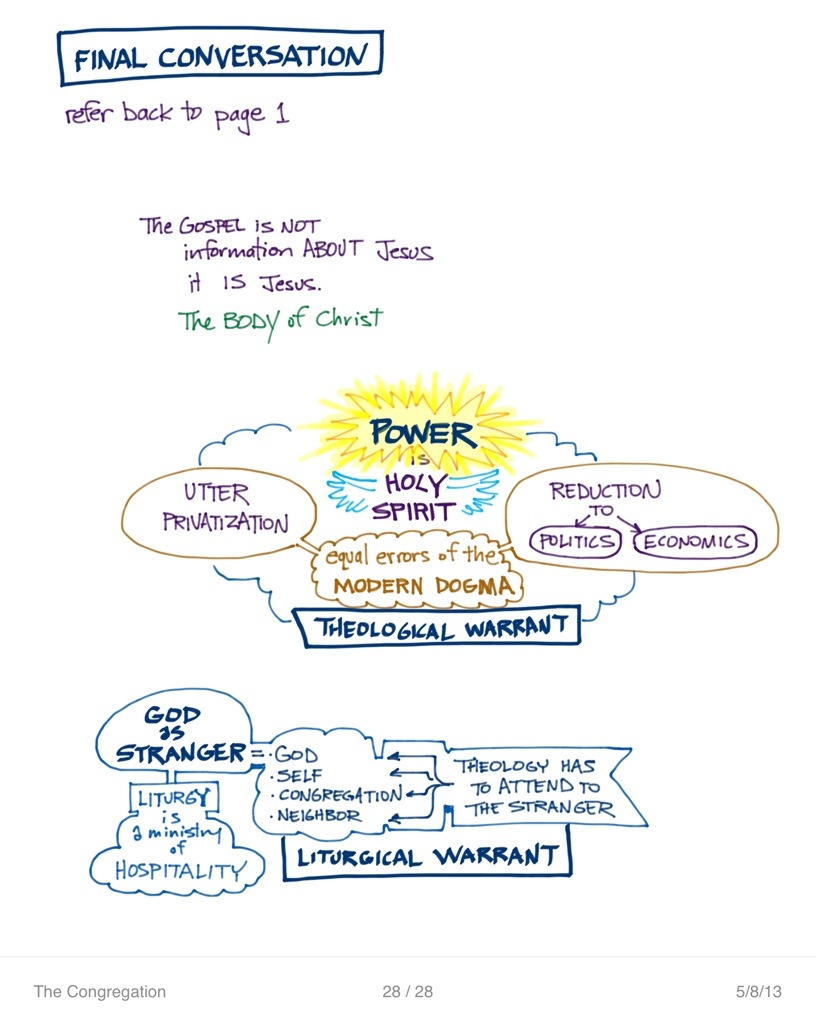 FINAL CONVERSATION
refer back to page 1
The GOSPEL is NOT
information ABOUT Jesus
it IS Jesus.
The BODY of Christ
POWER
is
HOLY
SPIRIT
UTTER
PRIVATIZATION
REDUCTION
TO
POLITICS
ECONOMICS
equal errors of the
MODERN DOGMA
THEOLOGICAL WARRANT
GOD
as
STRANGER =
· GOD
· SELF
· CONGREGATION
· NEIGHBOR
THEOLOGY HAS
TO ATTEND TO
THE STRANGER
LITURGY
is
a ministry
of
HOSPITALITY
LITURGICAL WARRANT
The Congregation
28 / 28
5/8/13